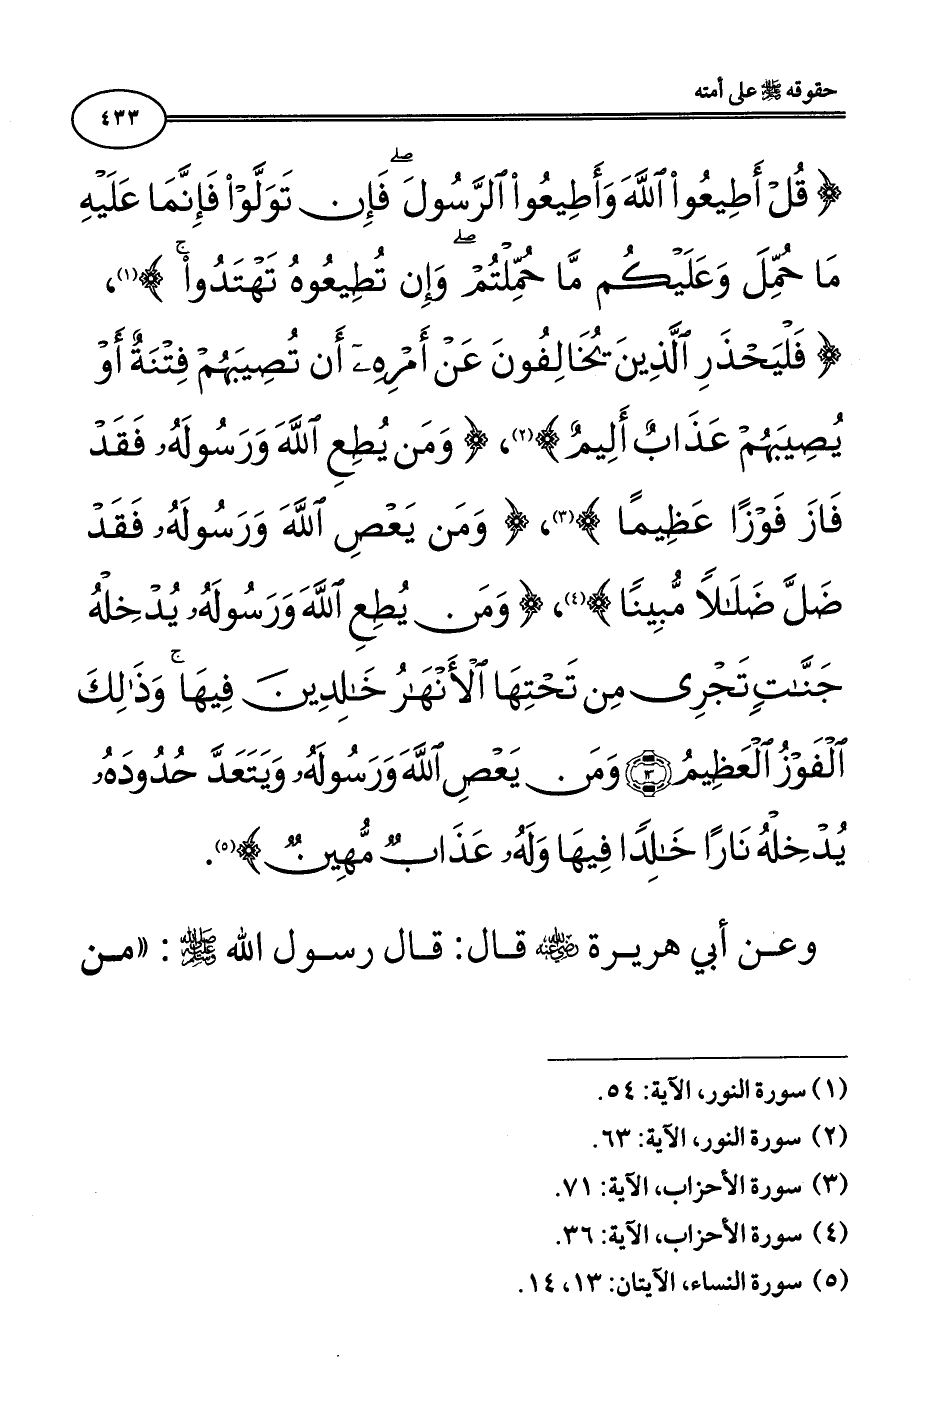 حقوقه ﷺ على أمته
٤٣٣
﴿ قُلْ أَطِيعُوا۟ ٱللَّهَ وَأَطِيعُوا۟ ٱلرَّسُولَ ۖ فَإِن تَوَلَّوْا۟ فَإِنَّمَا عَلَيْهِ
مَا حُمِّلَ وَعَلَيْكُم مَّا حُمِّلْتُمْ ۖ وَإِن تُطِيعُوهُ تَهْتَدُوا۟ ۚ ﴾(١)،
﴿ فَلْيَحْذَرِ ٱلَّذِينَ يُخَالِفُونَ عَنْ أَمْرِهِۦٓ أَن تُصِيبَهُمْ فِتْنَةٌ أَوْ
يُصِيبَهُمْ عَذَابٌ أَلِيمٌ ﴾(٢)، ﴿ وَمَن يُطِعِ ٱللَّهَ وَرَسُولَهُۥ فَقَدْ
فَازَ فَوْزًا عَظِيمًا ﴾(٣)، ﴿ وَمَن يَعْصِ ٱللَّهَ وَرَسُولَهُۥ فَقَدْ
ضَلَّ ضَلَٰلًا مُّبِينًا ﴾(٤)، ﴿ وَمَن يُطِعِ ٱللَّهَ وَرَسُولَهُۥ يُدْخِلْهُ
جَنَّٰتٍ تَجْرِى مِن تَحْتِهَا ٱلْأَنْهَٰرُ خَٰلِدِينَ فِيهَا ۚ وَذَٰلِكَ
ٱلْفَوْزُ ٱلْعَظِيمُ ۝١٣ وَمَن يَعْصِ ٱللَّهَ وَرَسُولَهُۥ وَيَتَعَدَّ حُدُودَهُۥ
يُدْخِلْهُ نَارًا خَٰلِدًا فِيهَا وَلَهُۥ عَذَابٌ مُّهِينٌ ﴾(٥).
وعن أبي هريرة رضي الله عنه قال: قال رسول الله ﷺ: «من
(١) سورة النور، الآية: ٥٤.
(٢) سورة النور، الآية: ٦٣.
(٣) سورة الأحزاب، الآية: ٧١.
(٤) سورة الأحزاب، الآية: ٣٦.
(٥) سورة النساء، الآيتان: ١٣، ١٤.